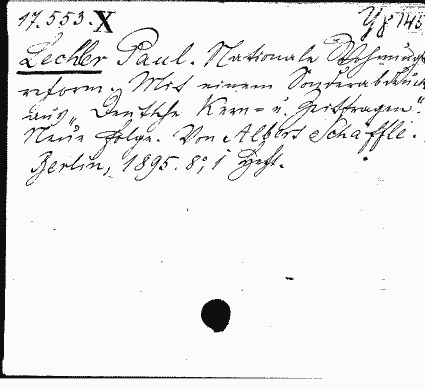 17.553. X
Lechler Paul. Nationale Wohnungs
reform. Mit einem Sonderabdruck
aus „Deutsche Kern= u. Zeitfragen“.
Neue Folge. Von Albert Schäffle.
Berlin, 1895. 8°, 1 Heft.